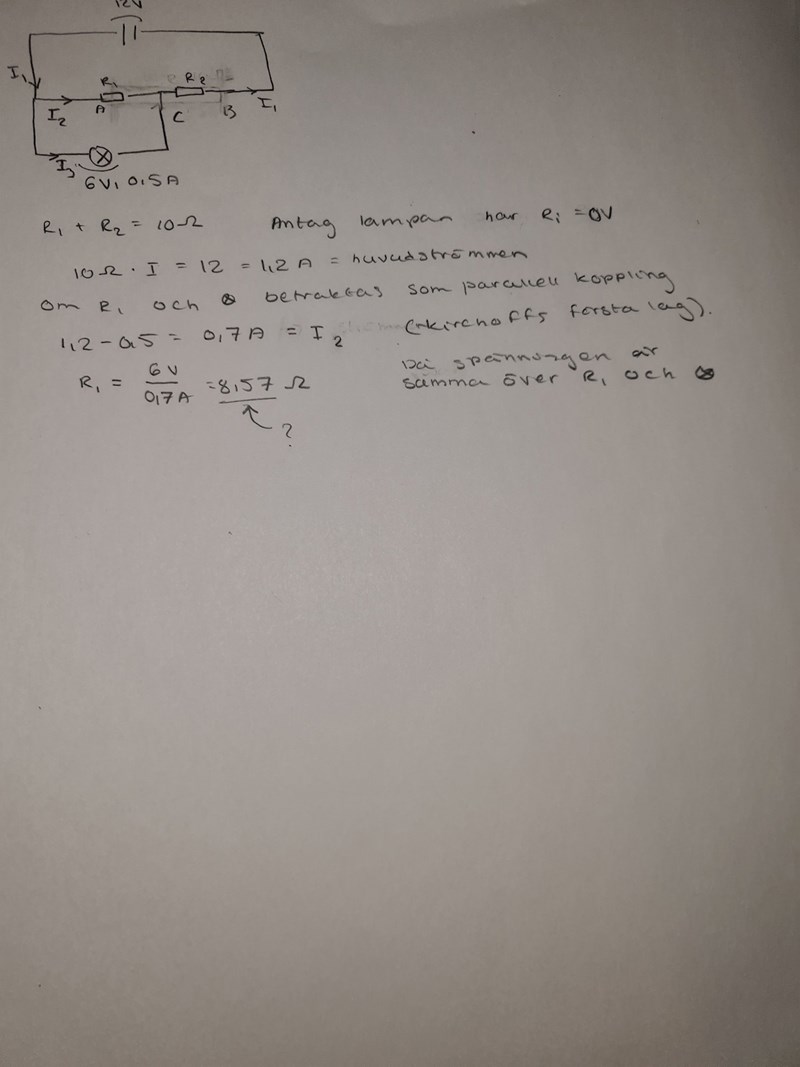 12V
I₁
R₁
R₂
I₂
A
C
B
I₁
I₃
6V, 0,5A
R₁ + R₂ = 10Ω Antag lampan har Ri = 0V
10Ω · I = 12 = 1,2 A = huvudströmmen
Om R₁ och ⊗ betraktas som parallell koppling
1,2 - 0,5 = 0,7A = I₂ (kirchoffs första lag).
R₁ = 6V / 0,7A = 8,57 Ω
spänningen är
samma över R₁ och ⊗
?